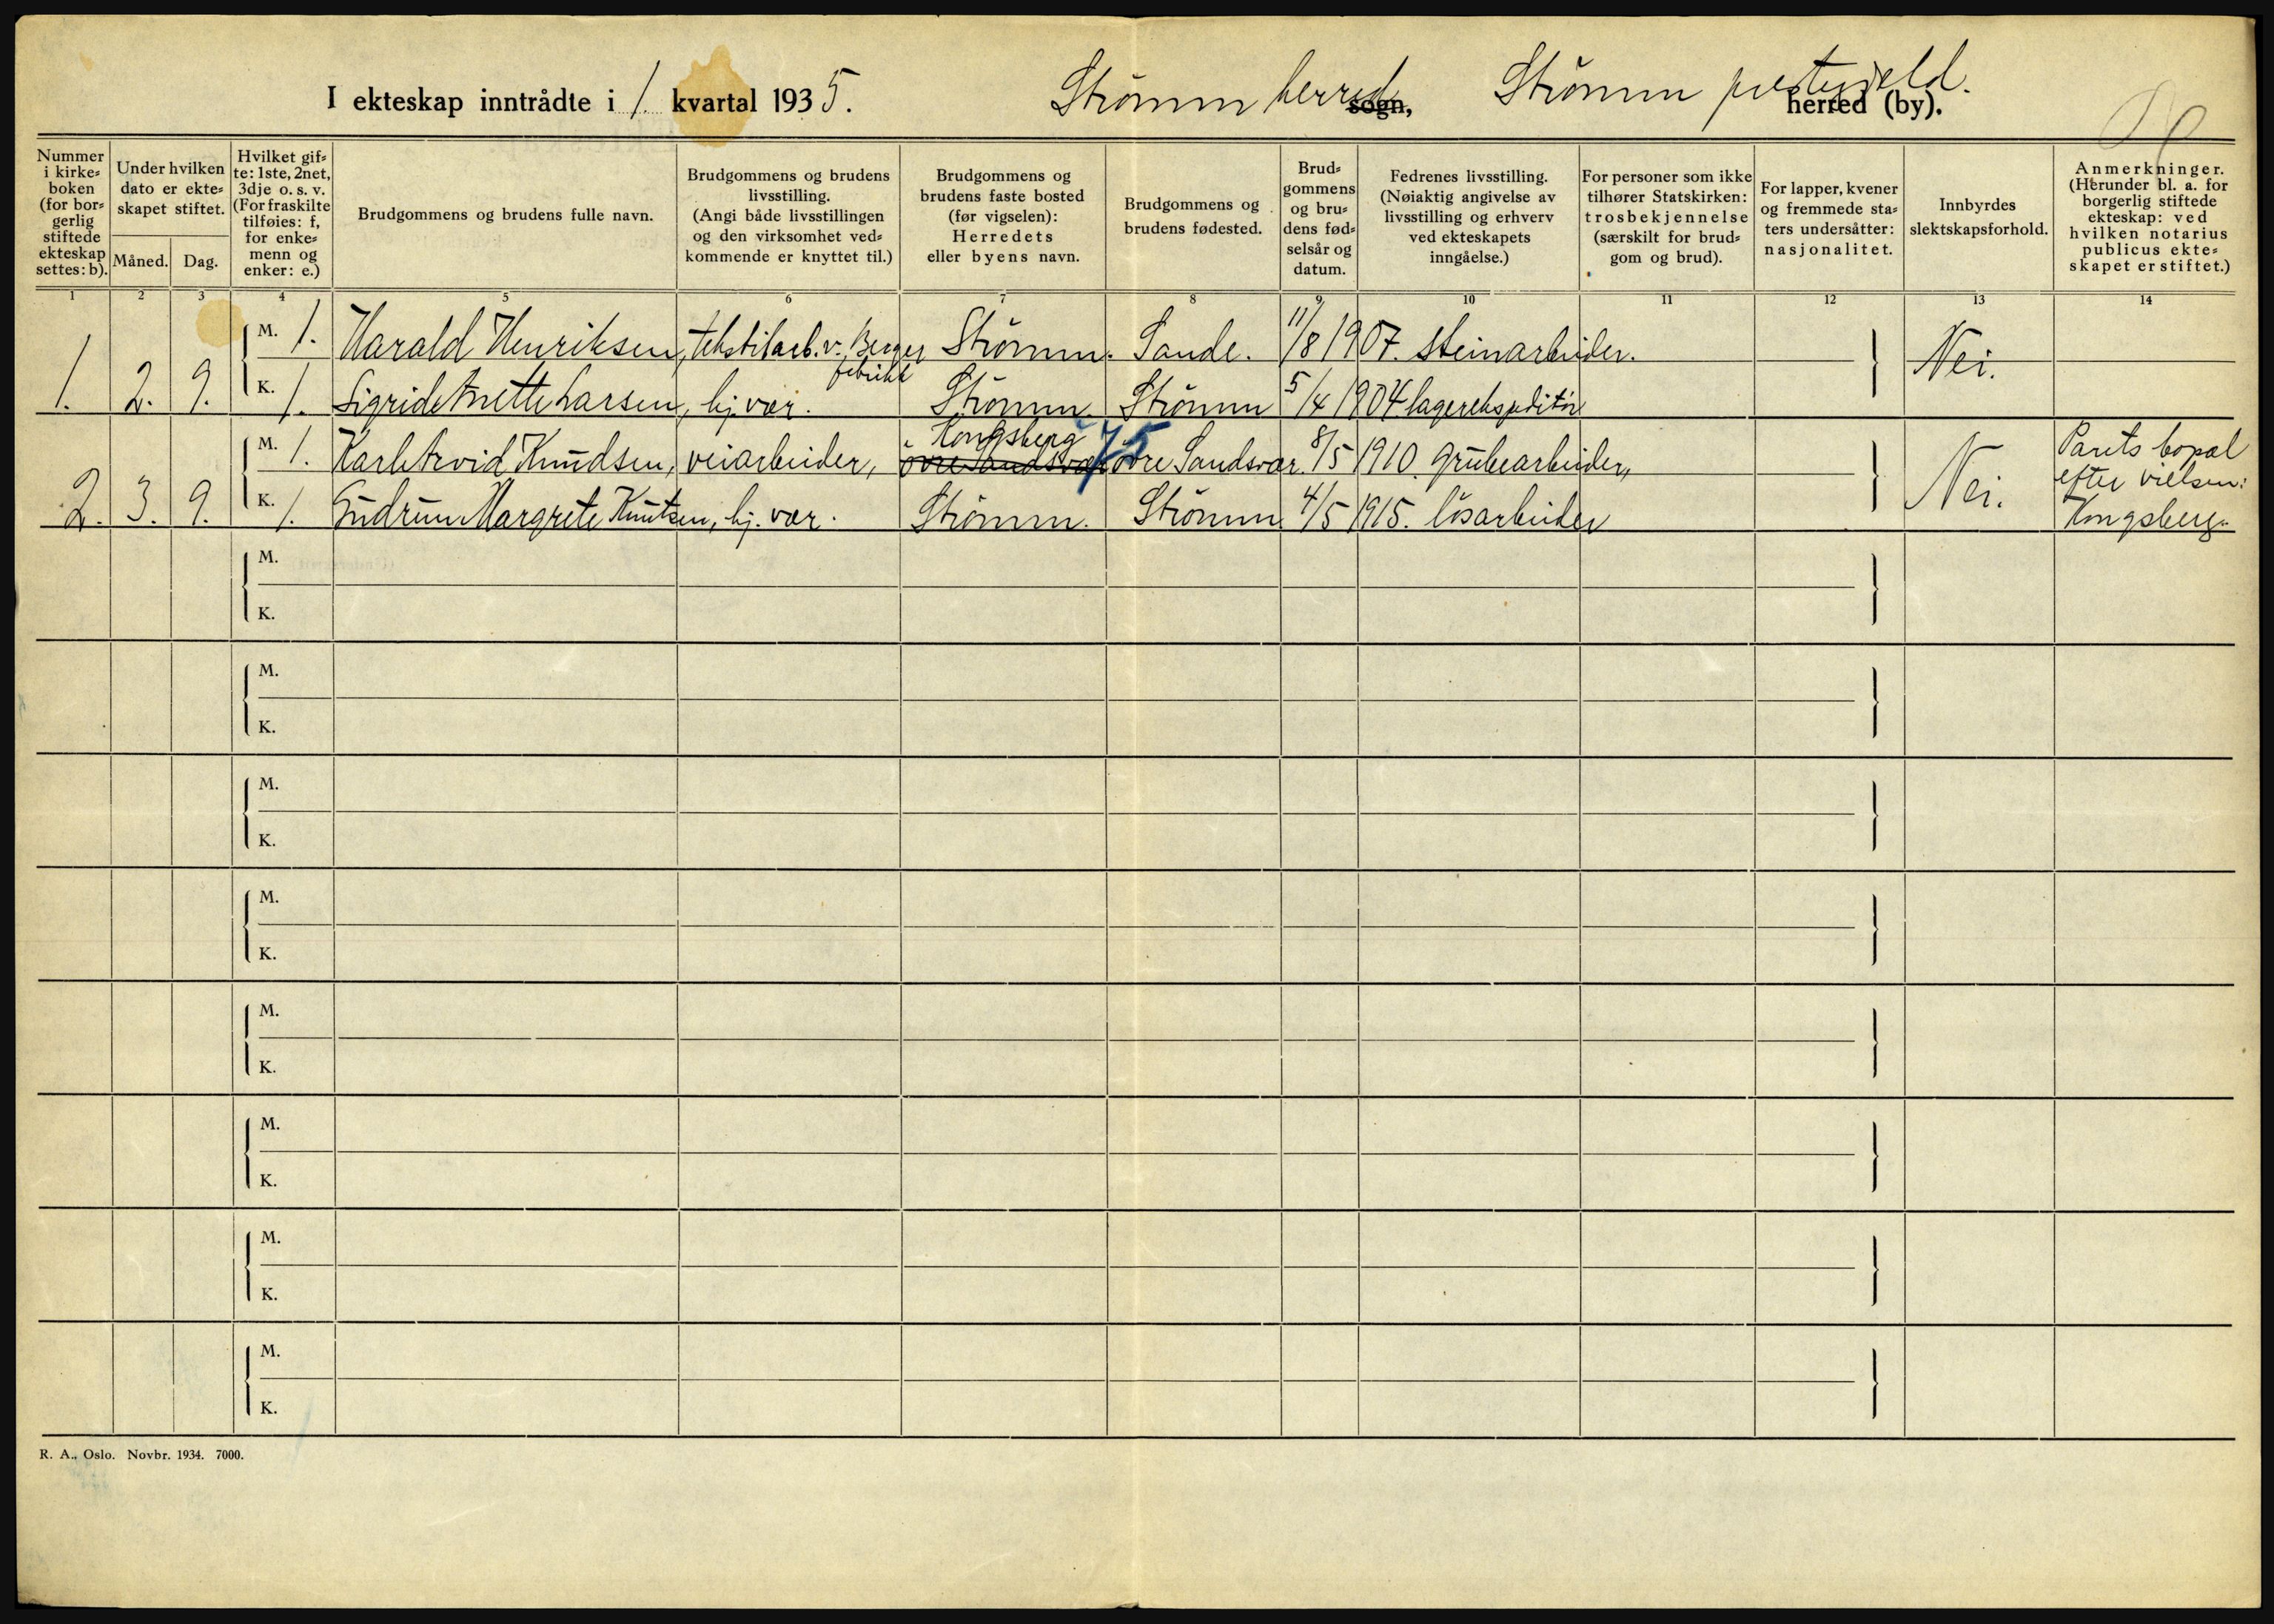 I ekteskap inntrådte i 1. kvartal 1935. Strömm herred sogn, Strömm prestegjeld. herred (by).
Nummer i kirke= boken (for bor= gerlig stiftede ekteskap settes: b).
Under hvilken dato er ekte= skapet stiftet.
Måned. Dag.
Hvilket gif= te: 1ste, 2net, 3dje o. s. v. (For fraskilte tilføies: f, for enke= menn og enker: e.)
Brudgommens og brudens fulle navn.
Brudgommens og brudens livsstilling. (Angi både livsstillingen og den virksomhet ved= kommende er knyttet til.)
Brudgommens og brudens faste bosted (før vigselen): Herredets eller byens navn.
Brudgommens og brudens fødested.
Brud= gommens og bru= dens fød= selsår og datum.
Fedrenes livsstilling. (Nøiaktig angivelse av livsstilling og erhverv ved ekteskapets inngåelse.)
For personer som ikke tilhører Statskirken: trosbekjennelse (særskilt for brud= gom og brud).
For lapper, kvener og fremmede sta= ters undersåtter: nasjonalitet.
Innbyrdes slektskapsforhold.
Anmerkninger. (Herunder bl. a. for borgerlig stiftede ekteskap: ved hvilken notarius publicus ekte= skapet er stiftet.)
1 2 3 4 5 6 7 8 9 10 11 12 13 14
M. 1. Harald Henriksen, tekstilarb. v. Berger fabrikk Strömm. Sande. 11/8 1907. steinarbeider.
1. 2. 9. K. 1. Sigrid Anette Larsen, hj. vær. Strömm. Strömm 5/4 1904 lagerekspeditör Nei.
M. 1. Karl Arvid Knudsen, veiarbeider, Kongsberg övre Sandsvær 75 övre Sandsvær. 8/5 1910. grubearbeider,
2. 3. 9. K. 1. Gudrun Margrete Knutsen, hj. vær. Strömm. Strömm. 4/5 1915. lösarbeider Nei. Parets bopæl efter vielsen: Kongsberg.
M.
K.
M.
K.
M.
K.
M.
K.
M.
K.
M.
K.
M.
K.
M.
K.
R. A., Oslo. Novbr. 1934. 7000.